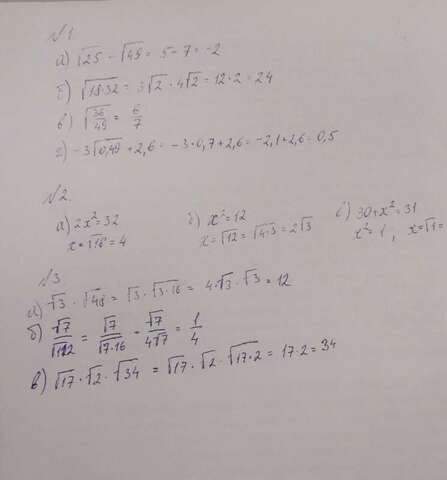 №1
а) √25 - √49 = 5 - 7 = -2
б) √18·32 = 3√2 · 4√2 = 12·2 = 24
в) √36/49 = 6/7
г) -3√0,49 + 2,6 = -3·0,7 + 2,6 = -2,1 + 2,6 = 0,5
№2.
а) 2x² = 32 б) x² = 12 в) 30 + x² = 31
x = √16 = 4 x = √12 = √4·3 = 2√3 x² = 1, x = √1 =
№3
а) √3 · √48 = √3 · √3·16 = 4√3 · √3 = 12
б) √7/√112 = √7/√7·16 = √7/4√7 = 1/4
в) √17 · √2 · √34 = √17 · √2 · √17·2 = 17·2 = 34